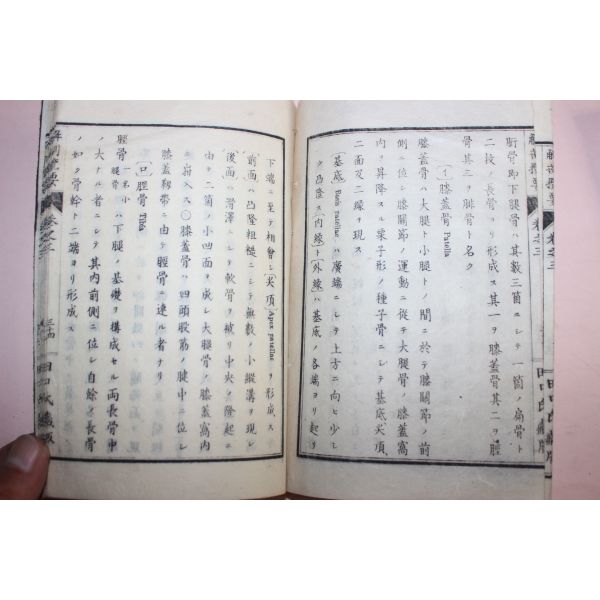 骭骨即下腿骨ハ其數三箇ニシテ一箇ノ扁骨ト
二枚ノ長骨ヨリ形成ス其一ヲ膝蓋骨其二ヲ脛
骨其三ヲ腓骨ト名ク
(イ)膝蓋骨 Patella
膝蓋骨ハ大腿ト小腿トノ間ニ於テ膝關節ノ前
側ニ位シ膝關節ノ運動ニ從テ大腿骨ノ膝蓋窩
内ヲ昇降スル栗子形ノ種子骨ニシテ基底尖頂
二面及二縁ヲ現ス
(基底) Basis patellae ハ廣端ニシテ上方ニ向ヒ少シ
ク凸隆ス(内縁)ト(外縁)ハ基底ノ各端ヨリ起リ
下端ニ至テ相會シ(尖頂) Apex patellae ヲ形成ス
前面ハ凸隆粗糙ニシテ無數ノ小縱溝ヲ現シ
後面ハ滑澤ニシテ軟骨ヲ被リ中央ノ隆起ニ
由テ二箇ノ小凹面ヲ成シ大腿骨ノ膝蓋窩内
ニ嵌入ス○膝蓋骨ハ四頭股筋ノ腱中ニ位シ
膝蓋靱帶ニ由テ脛骨ニ連ル者ナリ
(ロ)脛骨 Tibia
脛骨一名小腿骨ハ下腿ノ基礎ヲ構成セル兩長骨中
ノ大ナル者ニシテ其内前側ニ位シ自餘ノ長骨
ノ如ク骨幹ト二端ヨリ形成ス
卷之三
三十四